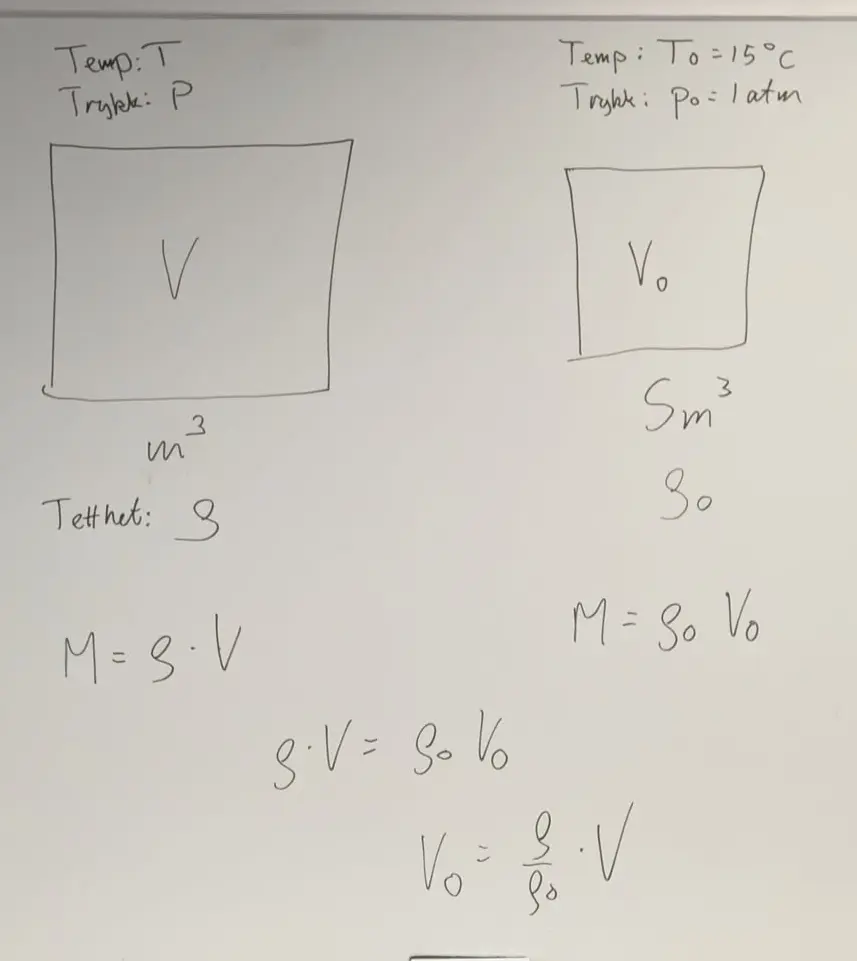 Temp: T
Trykk: P
V
m³
Tetthet: ρ
M = ρ · V
Temp: T₀ = 15°C
Trykk: p₀ = 1 atm
V₀
Sm³
ρ₀
M = ρ₀ V₀
ρ · V = ρ₀ V₀
V₀ = ρ/ρ₀ · V